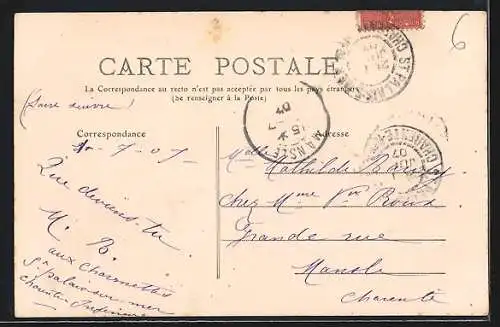 6
CARTE POSTALE
La Correspondance au recto n'est pas acceptée par tous les pays étrangers
(Se renseigner à la Poste)
(Faire suivre)
Correspondance
Adresse
7-07
Que deviens-tu
M. R.
aux Charmettes
St palais-sur-mer
Charente Inférieure
MANSLE
15-7
07
ST PALAIS
CHARENTE
07
Melle Mathilde
chez Mme Vve Roux
Grande rue
Mansle
Charente